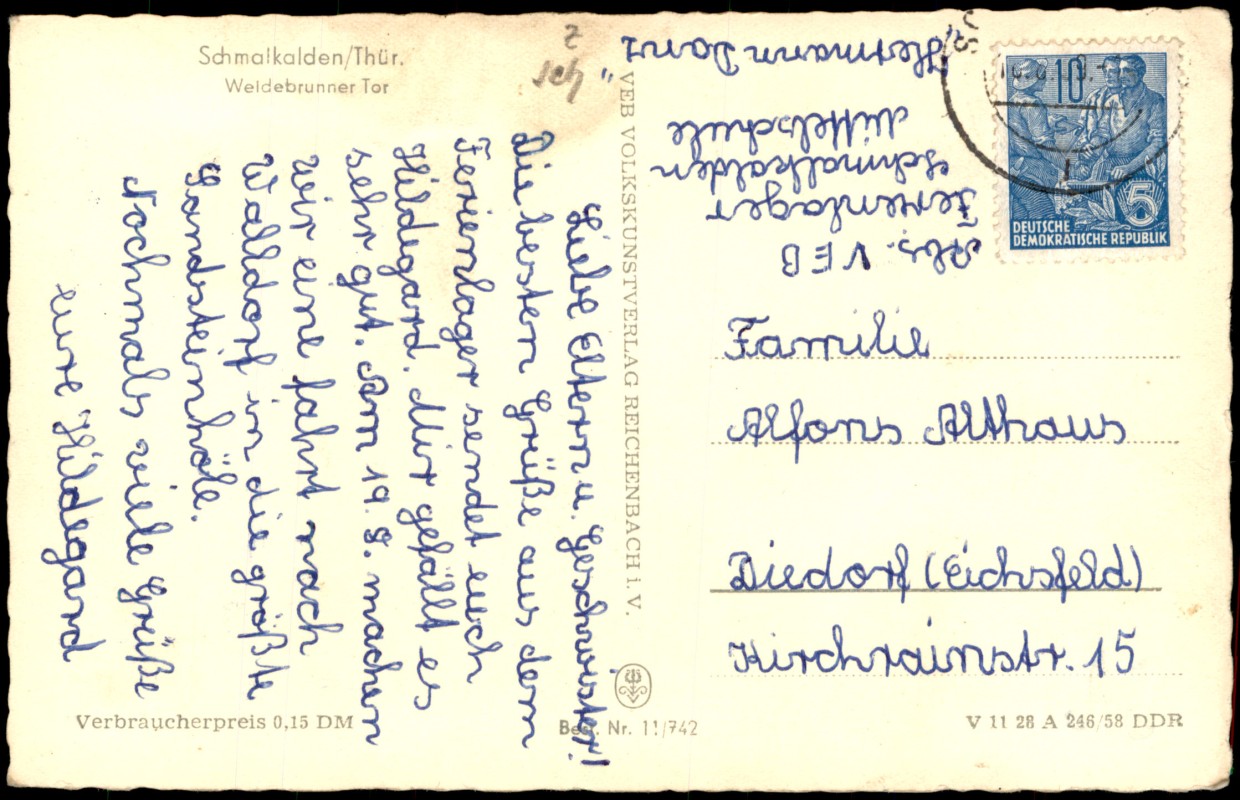 Schmalkalden/Thür.
Weidebrunner Tor
z
sch
Liebe Eltern u. Geschwister!
Die besten Grüße aus dem
Ferienlager sendet euch
Hildegard. Mir gefällt es
sehr gut. Am 19. 8. machen
wir eine fahrt nach
Walldorf in die größte
Sandsteinhöle.
Nochmals viele Grüße
eure Hildegard
VEB VOLKSKUNSTVERLAG REICHENBACH i. V.
Abs. VEB
Ferienlager
Schmalkalden
Mittelschule
"Hermann Danz"
10
5
DEUTSCHE
DEMOKRATISCHE REPUBLIK
Familie
Alfons Althaus
Diedorf (Eichsfeld)
Kirchrainstr. 15
Verbraucherpreis 0,15 DM
Best. Nr. 11/742
V 11 28 A 246/58 DDR